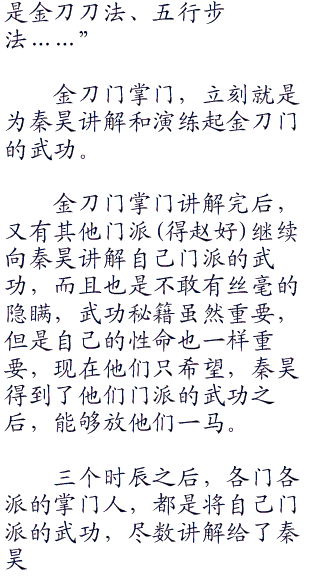 是金刀刀法、五行步
法……”
金刀门掌门，立刻就是
为秦昊讲解和演练起金刀门
的武功。
金刀门掌门讲解完后，
又有其他门派(得赵好)继续
向秦昊讲解自己门派的武
功，而且也是不敢有丝毫的
隐瞒，武功秘籍虽然重要，
但是自己的性命也一样重
要，现在他们只希望，秦昊
得到了他们门派的武功之
后，能够放他们一马。
三个时辰之后，各门各
派的掌门人，都是将自己门
派的武功，尽数讲解给了秦
昊